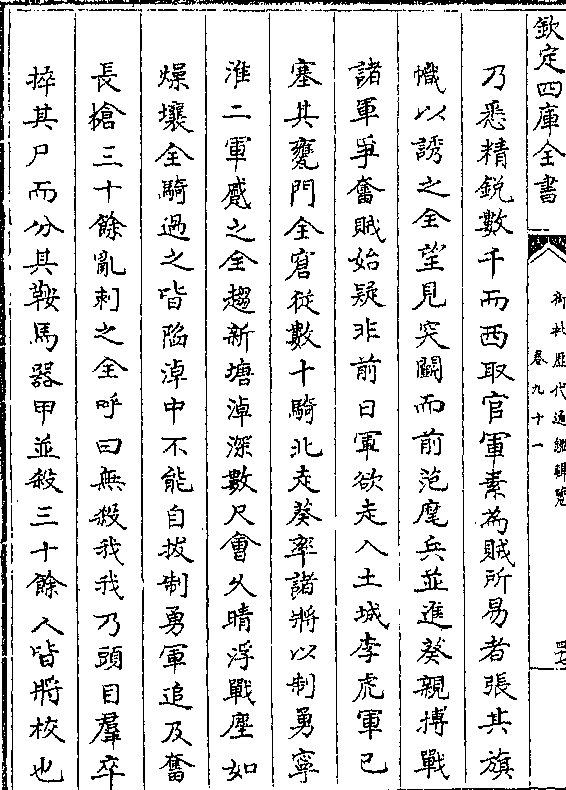 欽定四庫全書
御批歷代通鑑輯覽
卷九十一
乃悉精銳數千而西取官軍素為賊所易者張其旗
幟以誘之全望見突鬭而前范麾兵並進葵親搏戰
諸軍爭奮賊始疑非前日軍欲走入土城李虎軍已
塞其甕門全窘從數十騎北走葵率諸將以制勇寧
淮二軍蹙之全趨新塘淖深數尺會久晴浮戰塵如
燥壤全騎過之皆陷淖中不能自拔制勇軍追及奮
長槍三十餘亂刺之全呼曰無殺我我乃頭目羣卒
捽其尸而分其鞍馬器甲並殺三十餘人皆將校也